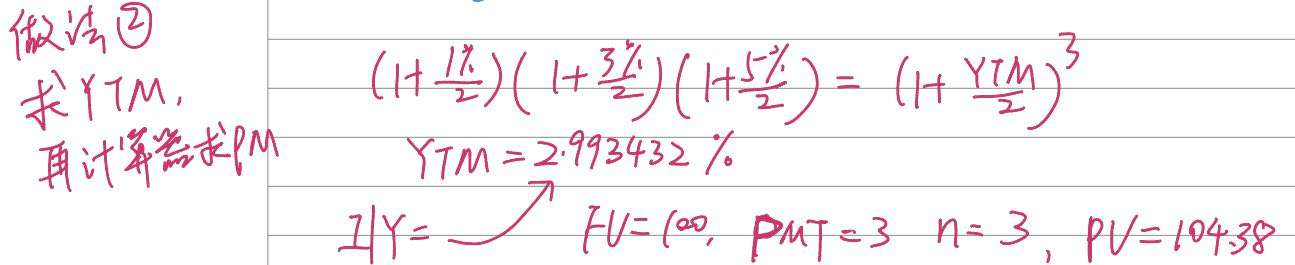 做法②
求YTM,
再计算器求PM
(1+1%/2)(1+3%/2)(1+5%/2)=(1+YTM/2)^3
YTM=2.993432%
I/Y= FV=100, PMT=3 n=3, PV=104.38